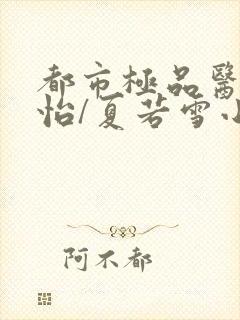 都市極品醫
怡/夏若雪小
阿不都